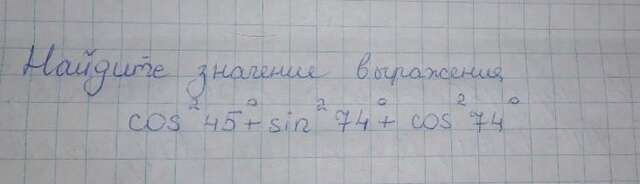 Найдите значение выражения
cos²45°+sin²74°+cos²74°